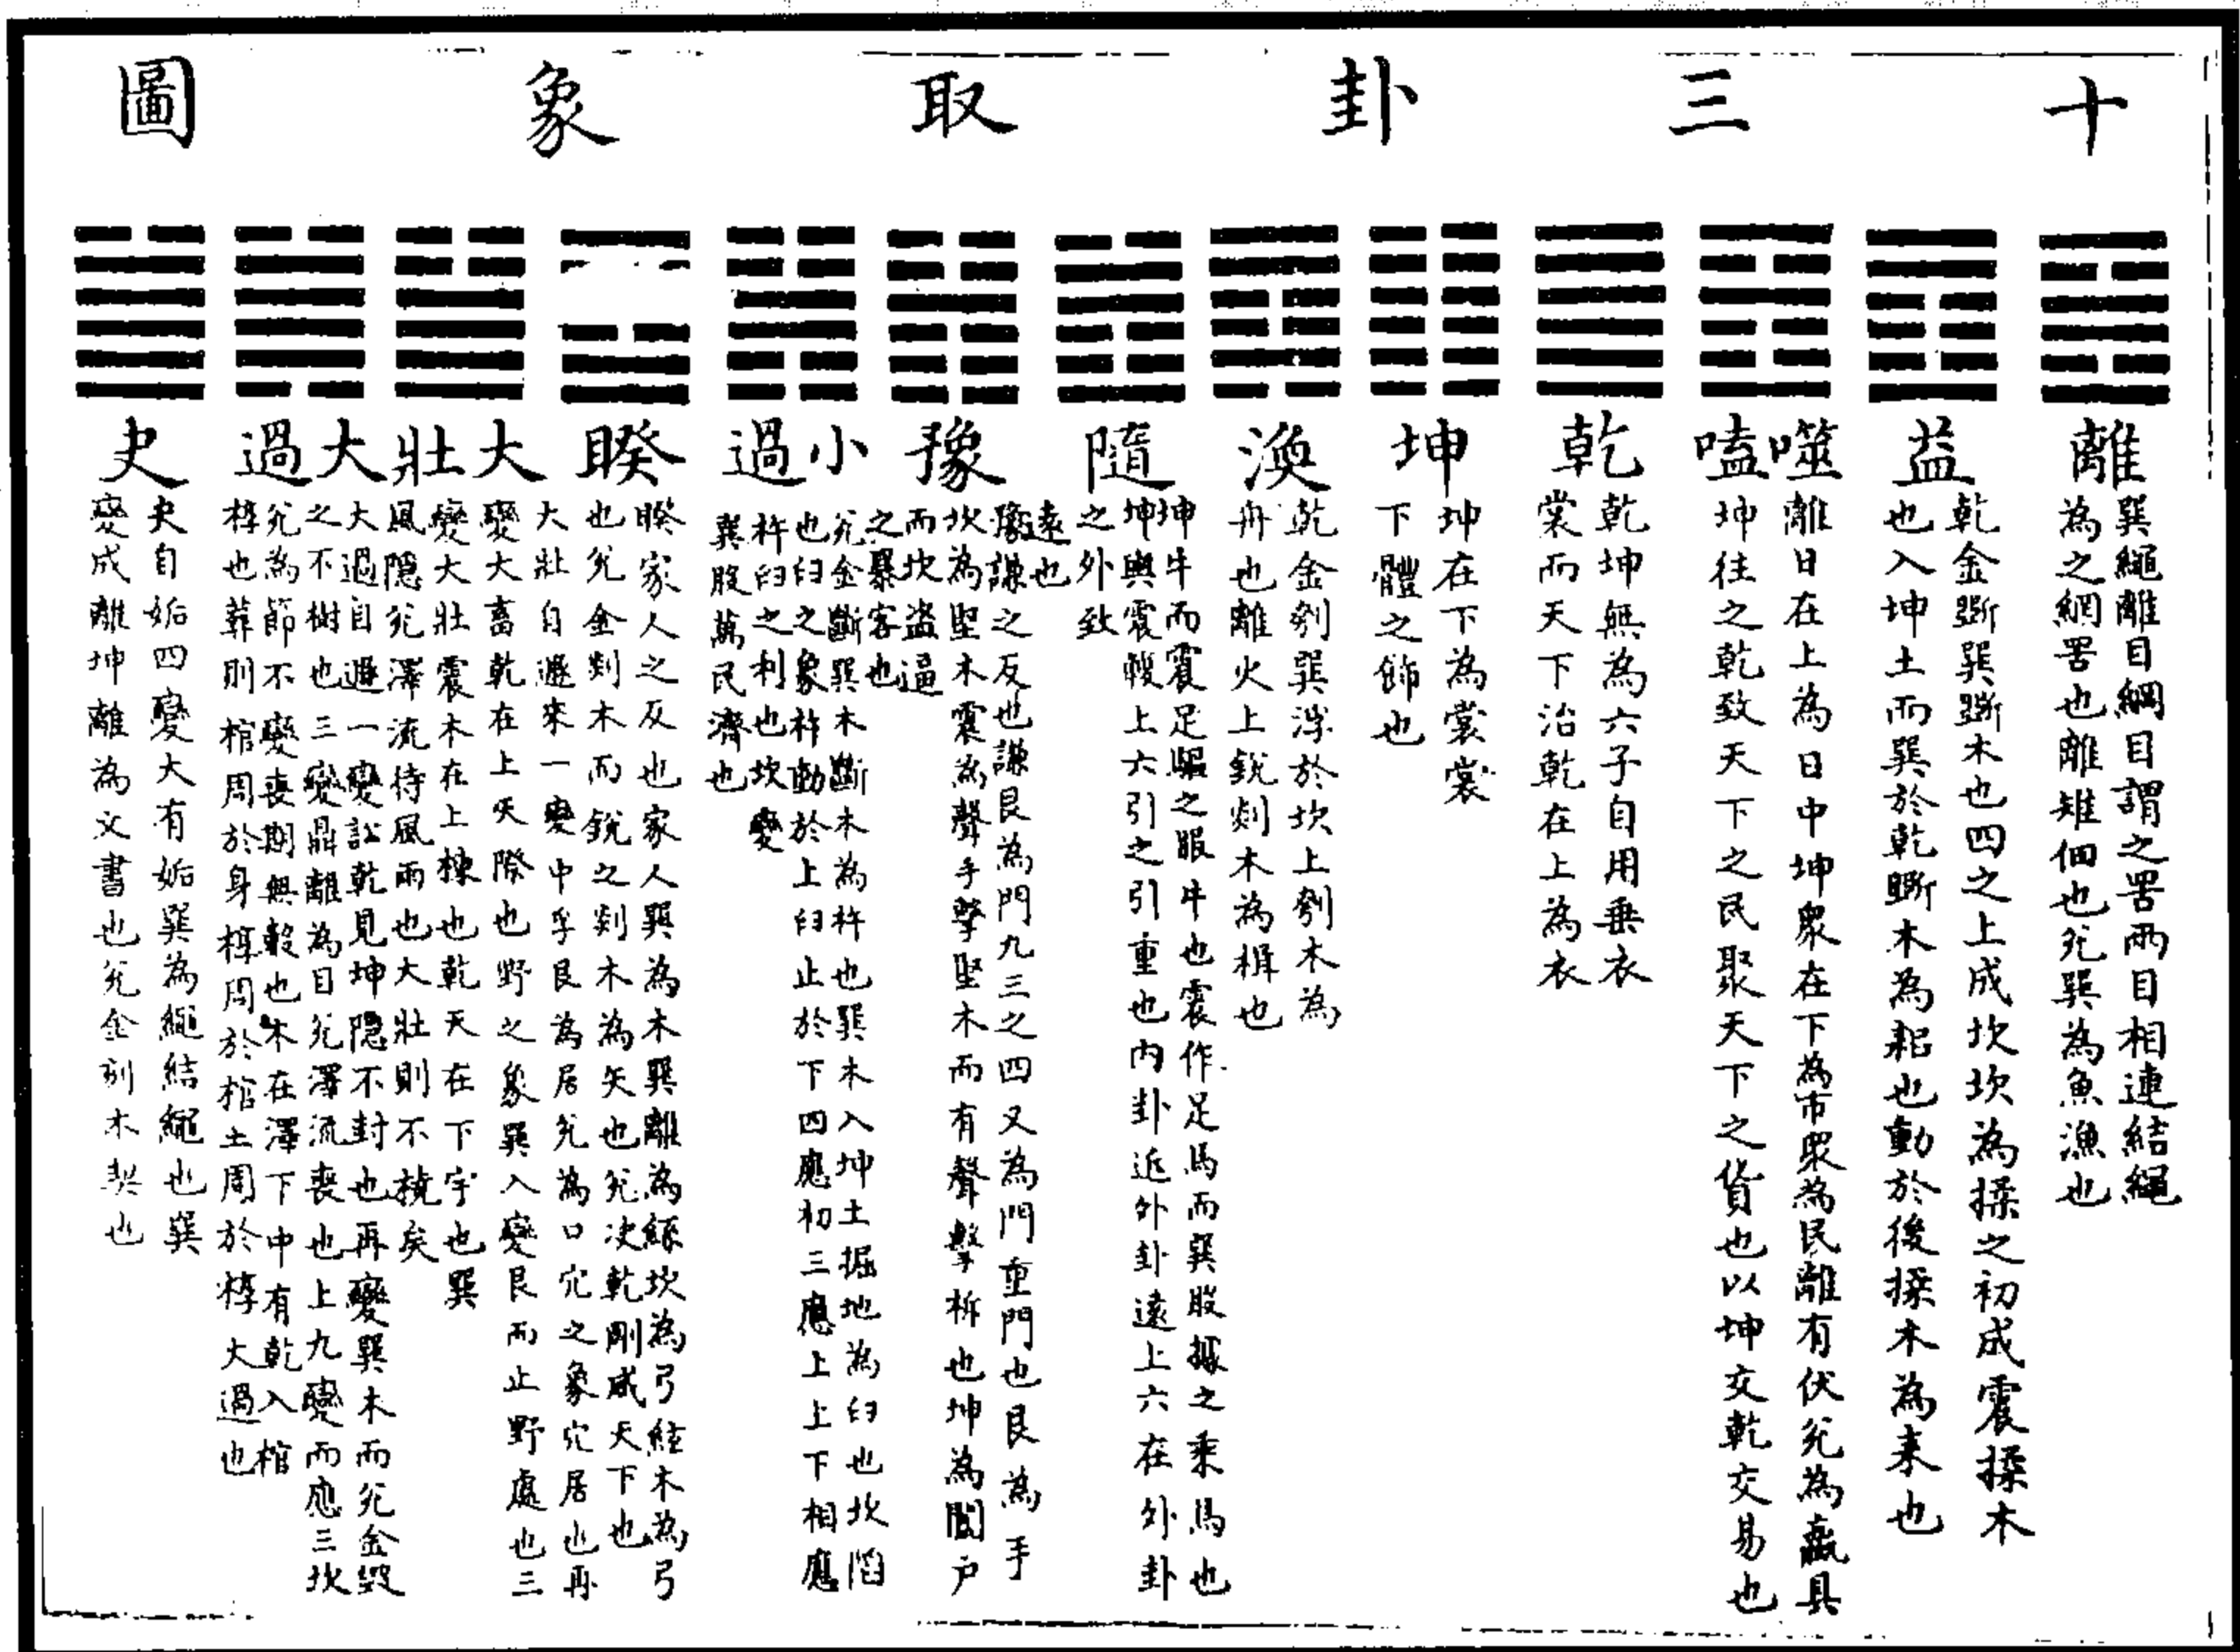 十三卦取象圖
離
巽繩離目綱目謂之罟兩目相連結繩
為之網罟也離雉佃也兊巽為魚漁也
益
乾金斲巽斲木也四之上成坎坎為揉之初成震揉木
也入坤土而巽於乾斲木為耜也動於後揉木為耒也
噬嗑
離日在上為日中坤衆在下為市衆為民離有伏兊為蠃具
坤往之乾致天下之民聚天下之貨也以坤交乾交易也
乾
乾坤無為六子自用垂衣
裳而天下治乾在上為衣
坤
坤在下為裳裳
下體之飾也
渙
乾金刳巽浮於坎上刳木為
舟也離火上銳剡木為楫也
隨
坤牛而震足驅之服牛也震作足馬而巽股據之乘馬也
坤輿震輹上六引之引重也内卦近外卦遠上六在外卦
之外致
遠也
豫
豫謙之反也謙艮為門九三之四又為門重門也艮為手
坎為堅木震為聲手擊堅木而有聲擊柝也坤為闔户
而坎盗逼
之暴客也
小過
兊金斷巽木斷木為杵也巽木入坤土掘地為臼也坎陷
也臼之象杵動於上臼止於下四應初三應上上下相應
杵臼之利也坎變
巽股萬民濟也
睽
睽家人之反也家人巽為木巽離為絲坎為弓絃木為弓
也兊金剡木而銳之剡木為矢也兊决乾剛威天下也
大壯
大壯自遯來一變中孚艮為居兊為口穴之象穴居也再
變大畜乾在上天際也野之象巽入變艮而止野處也三
變大壯震木在上棟也乾天在下宇也巽
風隱兊澤流待風雨也大壯則不撓矣
大過
大過自遯一變訟乾見坤隱不封也再變巽木而兊金毁
之不樹也三變鼎離為目兊澤流喪也上九變而應三坎
兊為節不變喪期無數也木在澤下中有乾入棺
椁也葬則棺周於身椁周於棺土周於椁大過也
夬
夬自姤四變大有姤巽為繩結繩也巽
變成離坤離為文書也兊金刻木契也